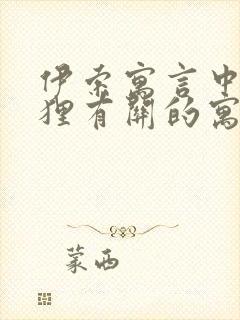 伊索寓言中
狸有關的寓
蒙西